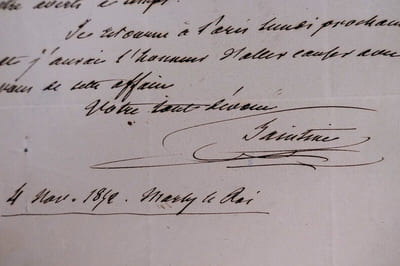 votre avertis à temps.
Je retourne à Paris lundi prochain
et j'aurai l'honneur d'aller causer avec
vous de cette affaire
Votre tout dévoué
Saintine
4 Nov. 1852. Marly le Roi